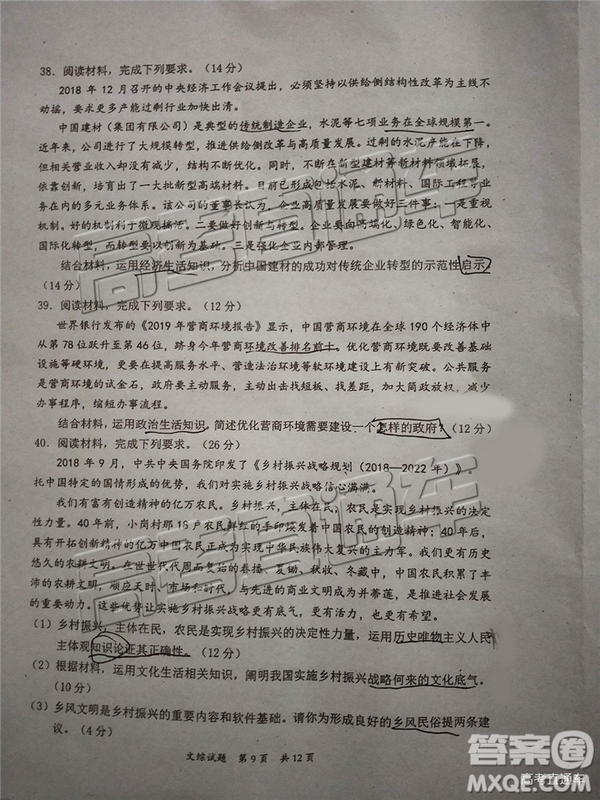 38．阅读材料，完成下列要求。（14 分）
2018 年 12 月召开的中央经济工作会议提出，必须坚持以供给侧结构性改革为主线不
动摇，要求更多产能过剩行业加快出清。
中国建材（集团有限公司）是典型的传统制造企业，水泥等七项业务在全球规模第一。
近年来，公司进行了大规模转型，推进供给侧优化与高质量发展。过剩的水泥产能在下降，
但相关营业收入却没有减少，结构不断优化。同时，不断在新型建材等新材料领域拓展，
依靠创新，培育出了一大批新型高端材料。目前已形成包括水泥、新材料、国际工程等业
务在内的多元业务体系。该公司的董事长认为，企业高质量发展要做好三件事：一是重视
机制。好的机制利于微观搞活。二要做好创新与转型。企业要向高端化、绿色化、智能化、
国际化转型，而转型要以创新为基础。三是强化企业内部管理。
结合材料，运用经济生活知识，分析中国建材的成功对传统企业转型的示范性启示。
（14 分）
39．阅读材料，完成下列要求。（12 分）
世界银行发布的《2019 年营商环境报告》显示，中国营商环境在全球 190 个经济体中
从第 78 位跃升至第 46 位，跻身今年营商环境改善排名前十。优化营商环境既要改善基础
设施等硬环境，更要在提高服务水平、营造法治环境等软环境建设上有新突破。公共服务
是营商环境的试金石，政府要主动服务，主动出击去找短板、找差距，加大简政放权、减少
办事程序，缩短办事流程。
结合材料，运用政治生活知识，简述优化营商环境需要建设一个怎样的政府？（12 分）
40．阅读材料，完成下列要求。（26 分）
2018 年 9 月，中共中央国务院印发了《乡村振兴战略规划（2018—2022 年）》。
托中国特定的国情形成的优势，我们对实施乡村振兴战略信心满满。
我们有富有创造精神的亿万农民。乡村振兴，主体在民，农民是实现乡村振兴的决定
性力量。40 年前，小岗村那 18 户农民鲜红的手印焕发着中国农民的创造精神；40 年后，
具有开拓创新精神的亿万中国农民正成为实现中华民族伟大复兴的主力军。我们更有历史
悠久的农耕文明。在世世代代周而复始的春播、夏锄、秋收、冬藏中，中国农民积累了丰
沛的农耕文明，顺应天时、市场和时代，与先进的商业文明成为并蒂莲，是推进社会发展
的力量。这些优势让实施乡村振兴战略更有底气，更有力量，也更有希望。
（1）乡村振兴，主体在民，农民是实现乡村振兴的决定性力量，运用历史唯物主义人民
主体观知识论证其正确性。（12 分）
（2）根据材料，运用文化生活相关知识，阐明我国实施乡村振兴战略何来的文化底气。
（10 分）
（3）乡风文明是乡村振兴的重要内容和软件基础。请你为形成良好的乡风民俗提两条建
议。（4 分）
文综试题 第 9 页 共 12 页
高考直通车
答案圈
高考直通车
MXQE.COM